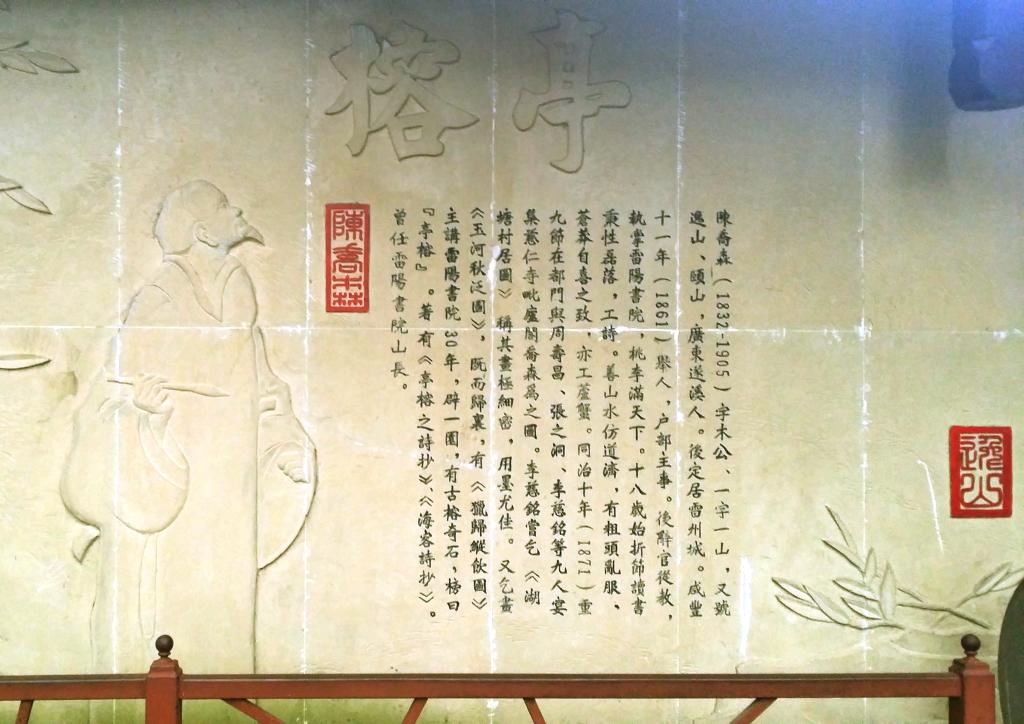 榕亭
陳喬森（1832-1905）字木公、一字一山，又號
逸山、頤山，廣東遂溪人。後定居雷州城。咸豐
十一年（1861）舉人，户部主事。後辭官從教，
執掌雷陽書院，桃李滿天下。十八歲始折節讀書
秉性磊落，工詩。善山水仿道濟，有粗頭亂服、
蒼莽自喜之致，亦工蘆蟹。同治十年（1871）重
九節在都門與周壽昌、張之洞、李慈銘等九人宴
集慈仁寺毗廬閣喬森爲之圖。李慈銘嘗乞《湖
塘村居圖》稱其畫極細密，用墨尤佳。又乞畫
《玉河秋泛圖》，既而歸裏，有《獵歸縱飲圖》
主講雷陽書院30年，辟一園，有古榕奇石，榜曰
『亭榕』。著有《亭榕之詩抄》、《海客詩抄》。
曾任雷陽書院山長。
陳喬森
逸山